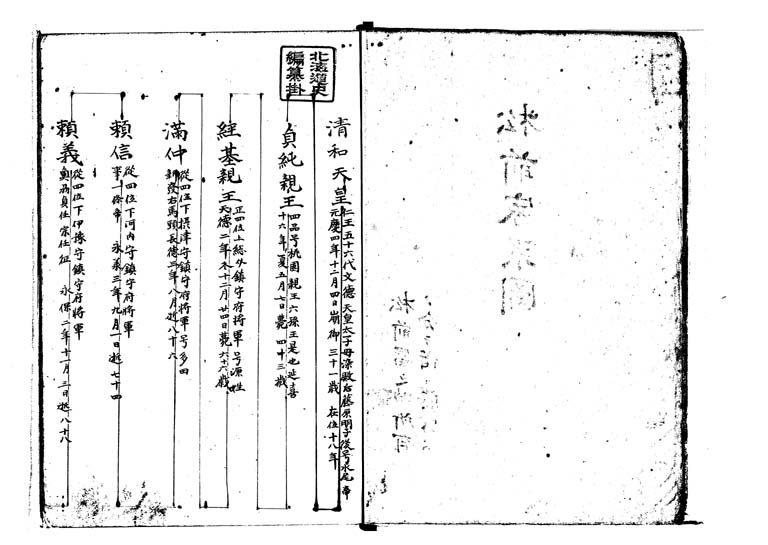 北海道史
編纂掛
清和天皇
仁王五十六代文德天皇太子母染殿后藤原明子後号水尾帝
元慶四年十二月四日崩御三十一歳 在位十八年
貞純親王
四品号桃園親王六孫王是也延喜
十六年夏五月七日薨 四十三歳
経基親王
正四位上総介鎮守府将軍号源姓
天德二年 十二月廿四日薨六十六歳
満仲
從四位下摂津守鎮守府将軍号多田
新發右馬頭長德三年八月逝八十六
頼信
從四位下河内守鎮守府将軍
事一條帝 永承三年九月一日逝七十四
頼義
從四位下伊豫守鎮守府将軍
奥州貞任宗任征 永保二年十一月三日逝八十八
松前家系圖